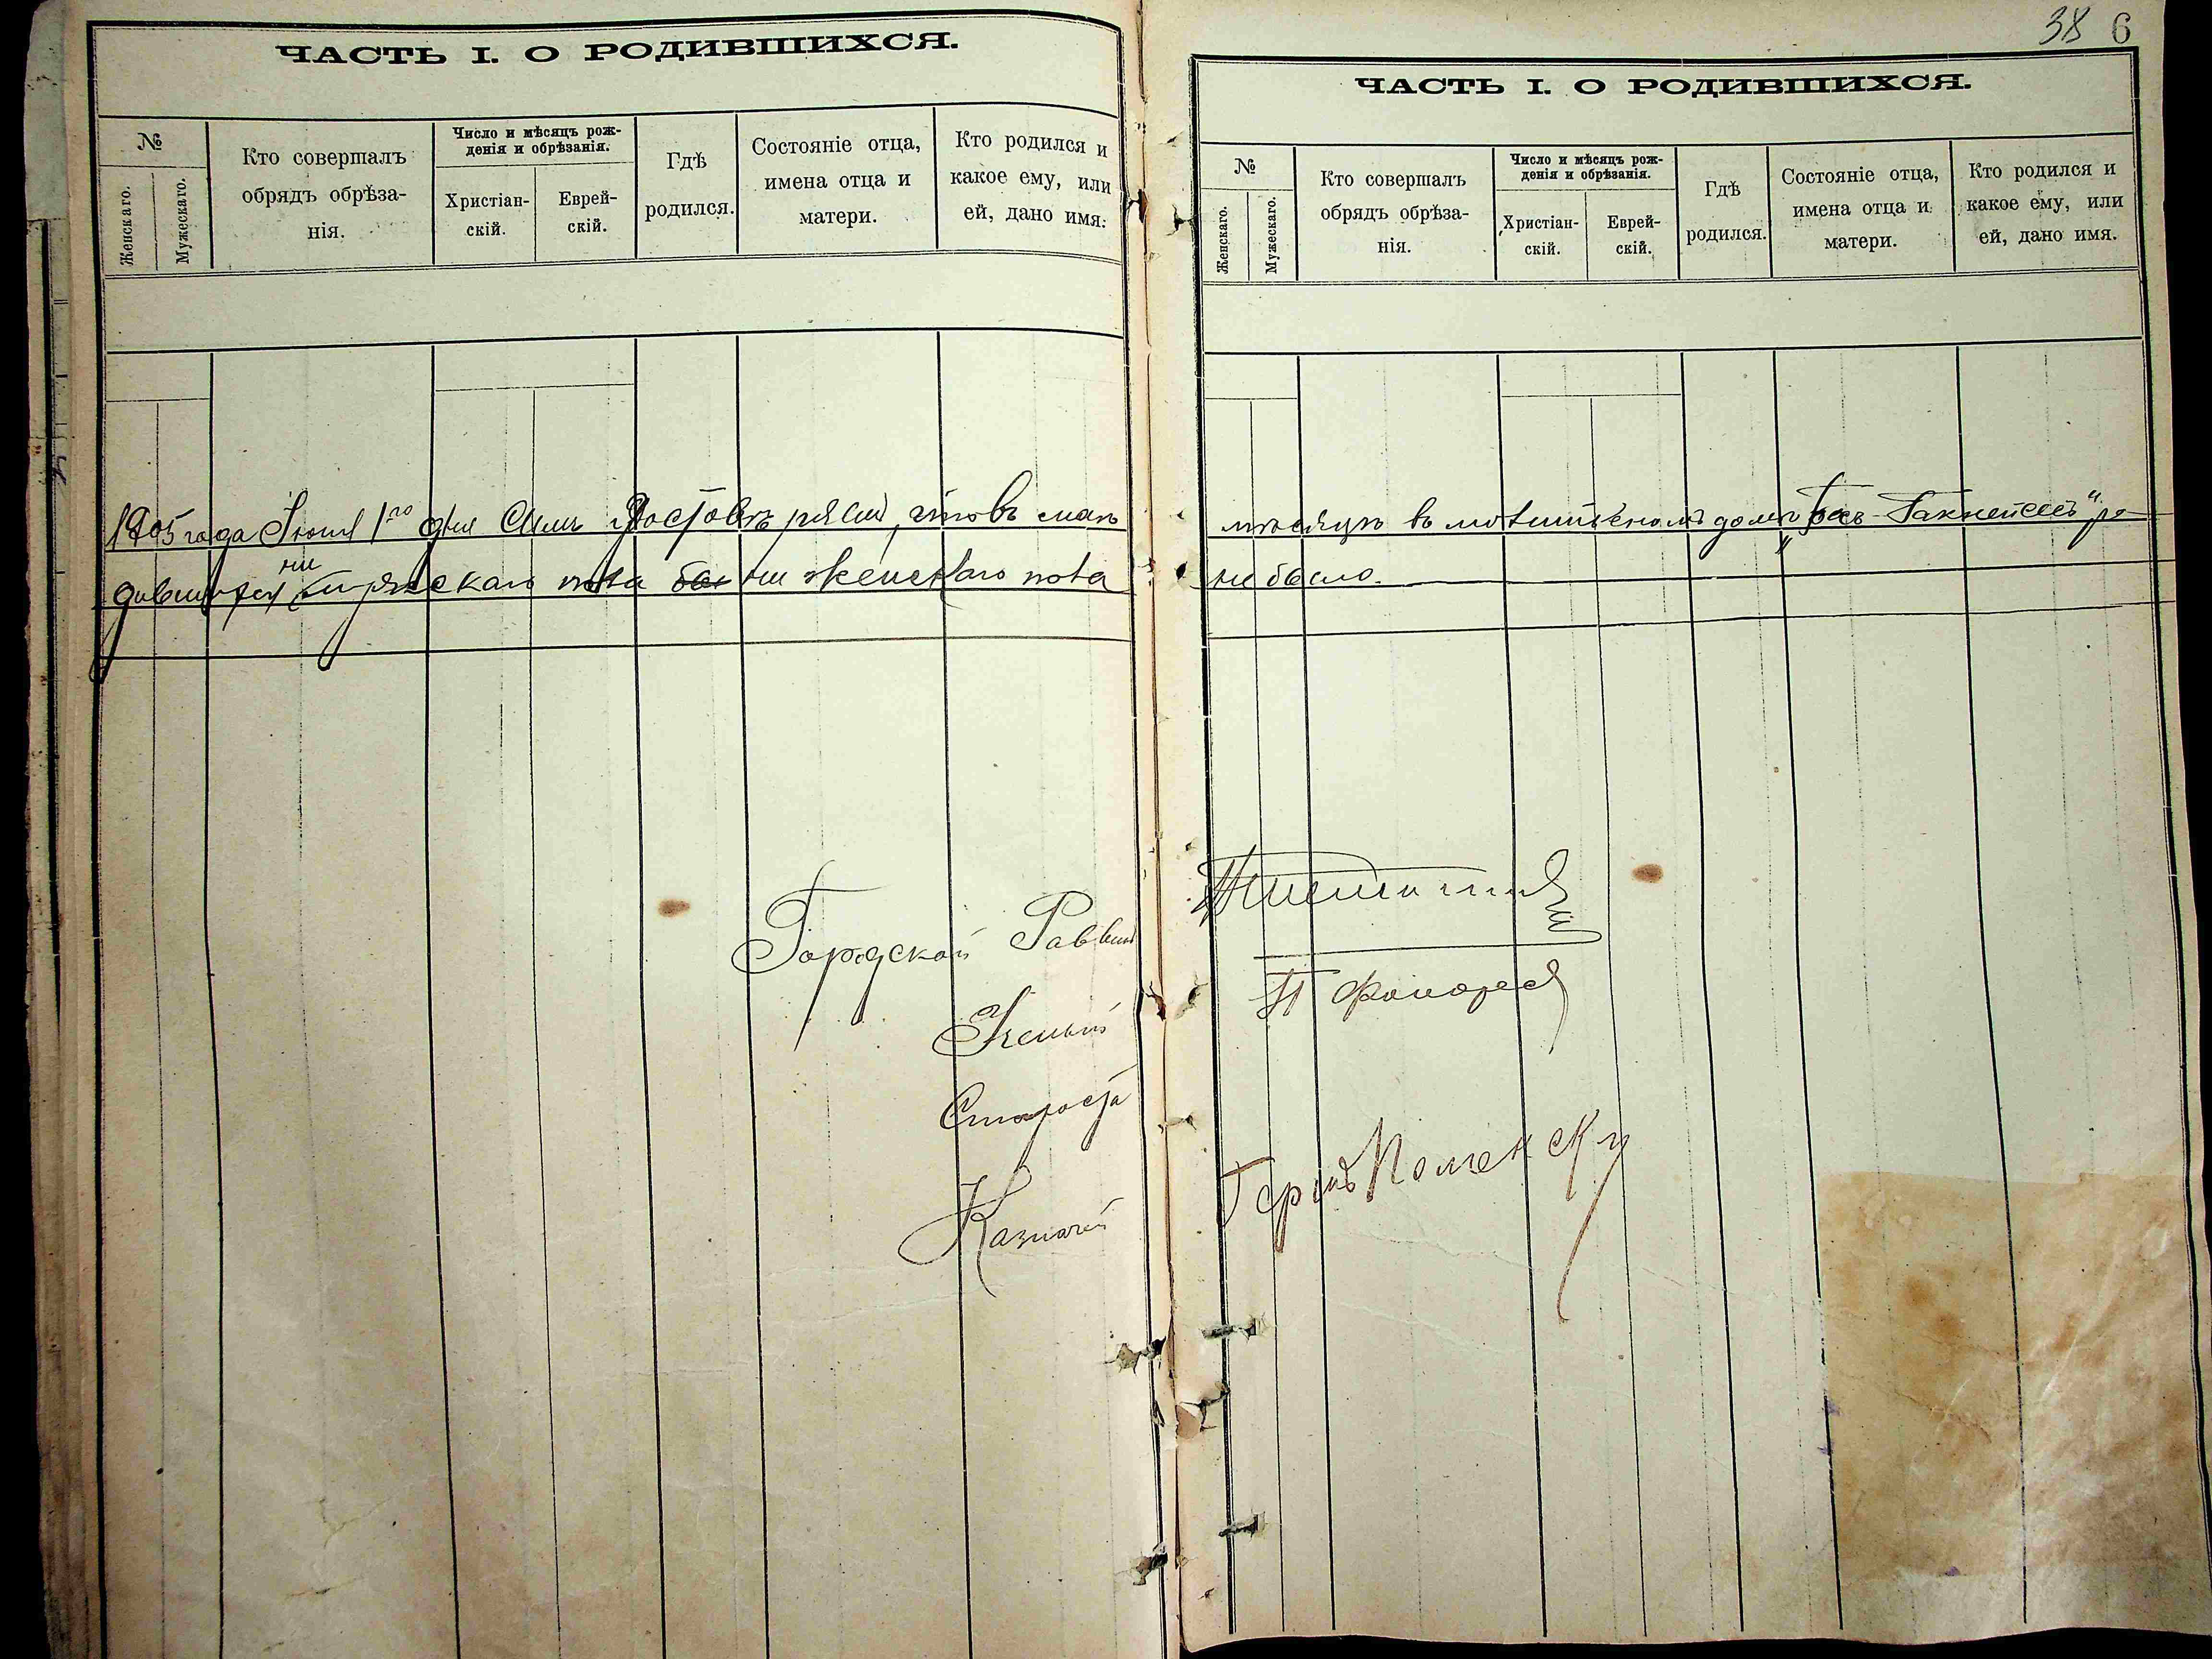 ЧАСТЬ I. О РОДИВШИХСЯ.
№
Женскаго.
Мужескаго.
Кто совершалъ
обрядъ обрѣза-
нія.
Число и мѣсяцъ рож-
денія и обрѣзанія.
Христіан-
скій.
Еврей-
скій.
Гдѣ
родился.
Состояніе отца,
имена отца и
матери.
Кто родился и
какое ему, или
ей, дано имя.
1905 года Іюня 1го дня Симъ удостовѣряемъ, что въ маѣ
дившихся ни мужескаго пола ни женскаго пола
Городской Раввинъ
Ученый
Староста
Казначей
38 6
ЧАСТЬ I. О РОДИВШИХСЯ.
№
Женскаго.
Мужескаго.
Кто совершалъ
обрядъ обрѣза-
нія.
Число и мѣсяцъ рож-
денія и обрѣзанія.
Христіан-
скій.
Еврей-
скій.
Гдѣ
родился.
Состояніе отца,
имена отца и
матери.
Кто родился и
какое ему, или
ей, дано имя.
мѣсяцѣ въ молитвенномъ домѣ ро-
не было.
Гершъ